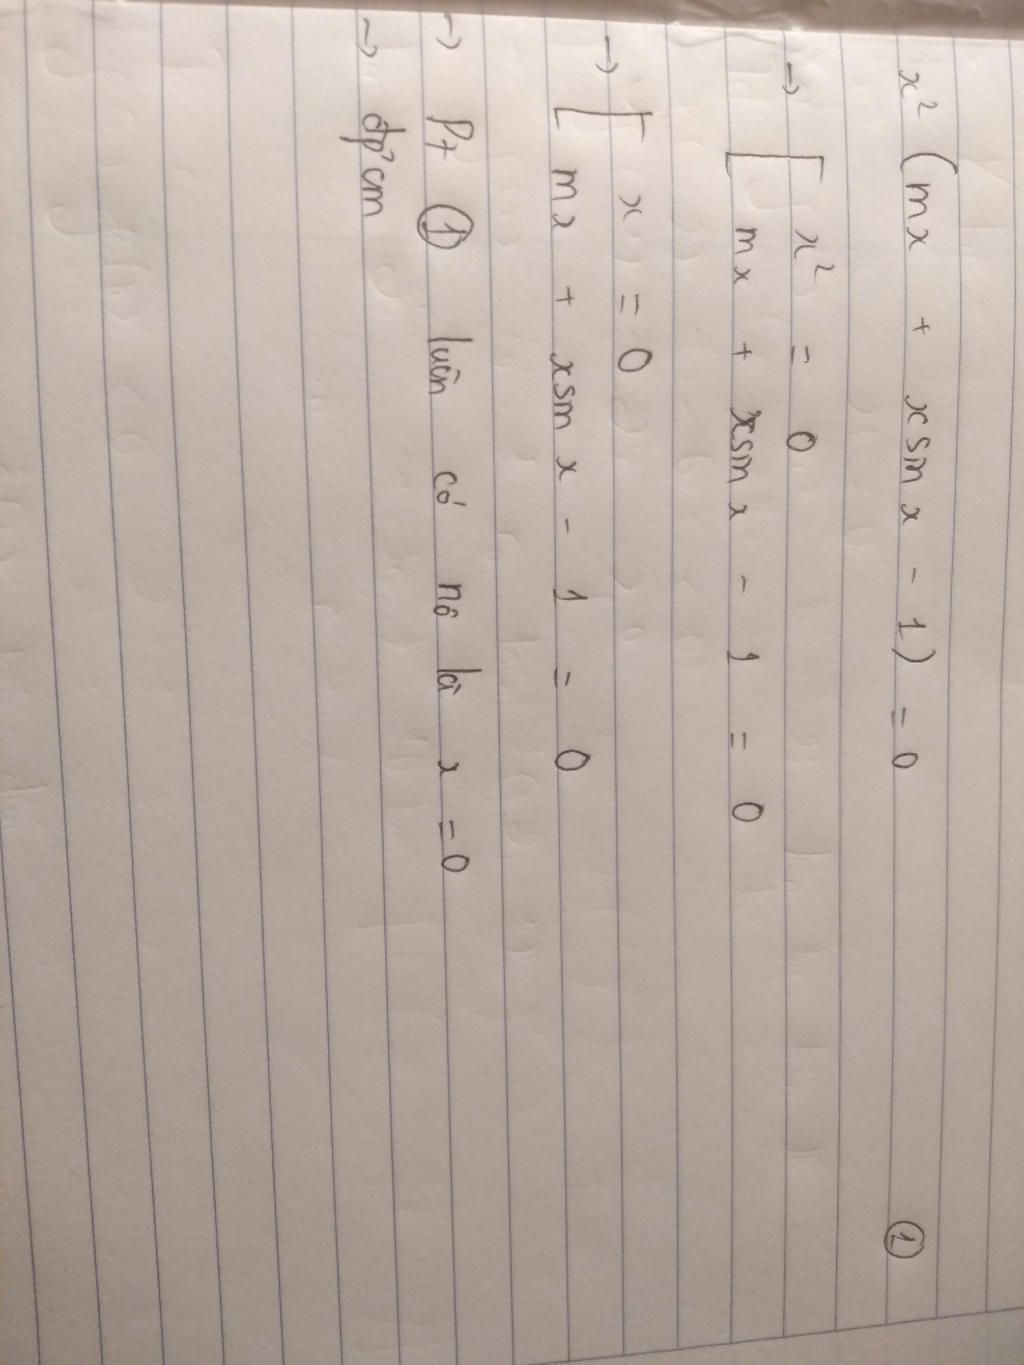 x² (mx + xsin x - 1) = 0 ①
→ [ x² = 0
mx + xsin x - 1 = 0
→ [ x = 0
mx + xsin x - 1 = 0
→ Pt ① luôn có nô là x = 0
→ đpcm